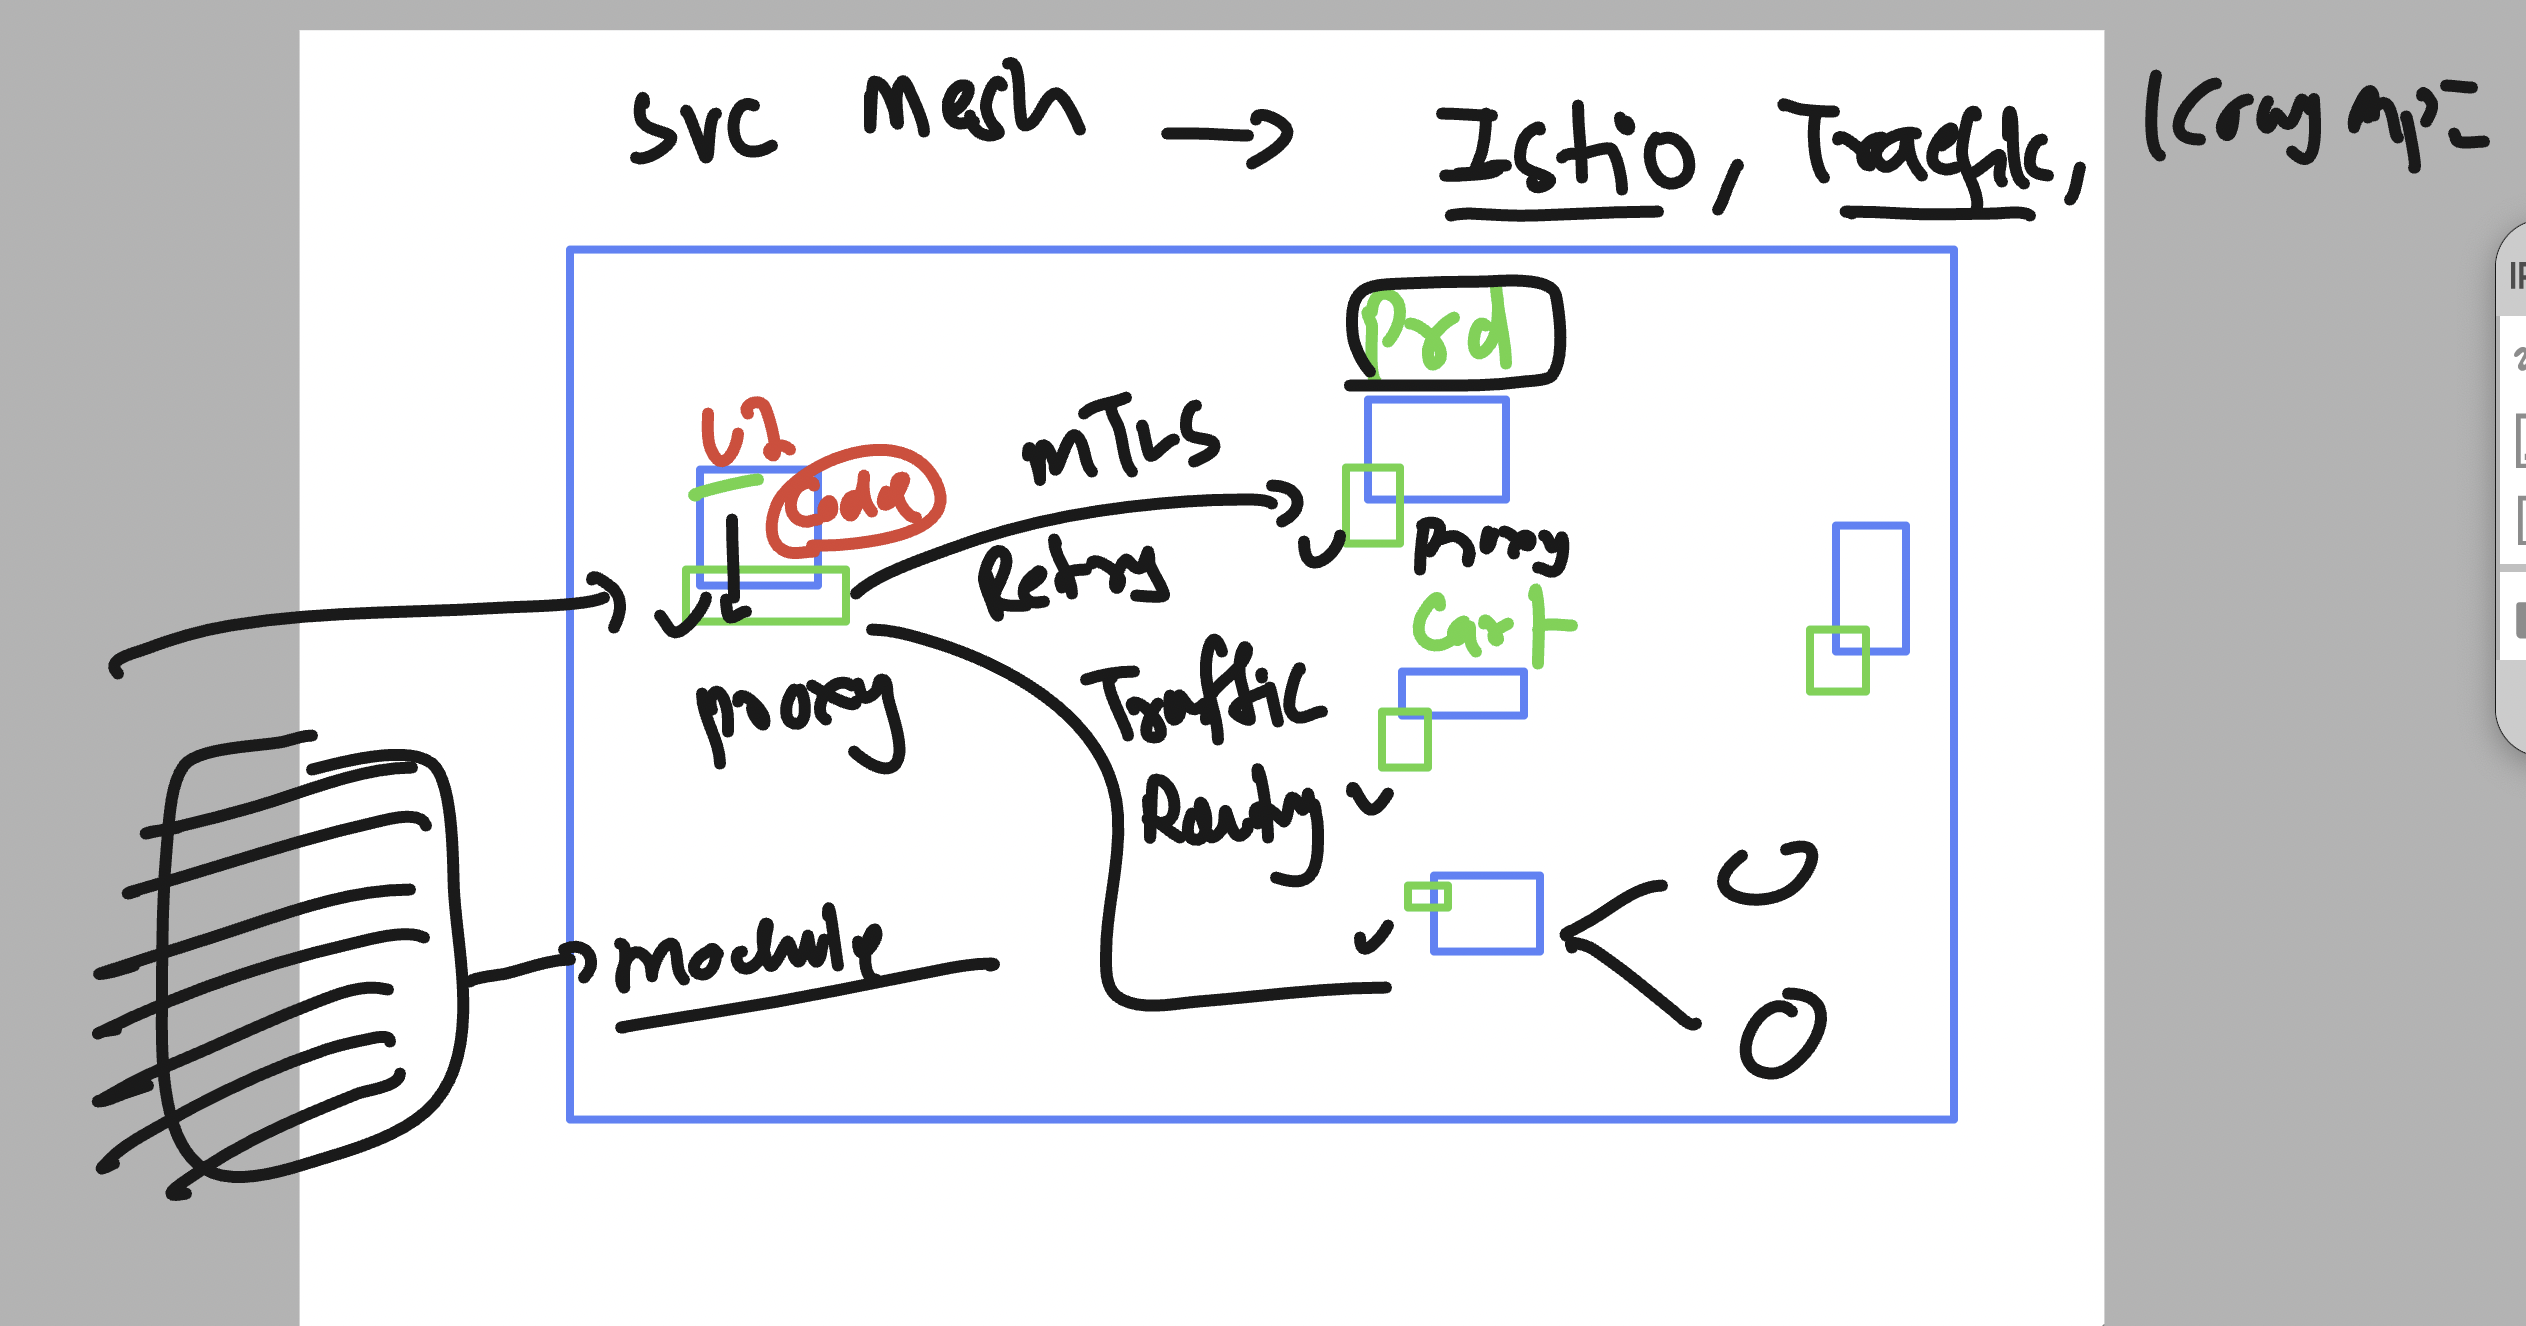 svc Mesh → Istio, Traefik,
Prd
mTLS
Code
Retry
Proxy
Cart
proxy
Traffic
Routing
module